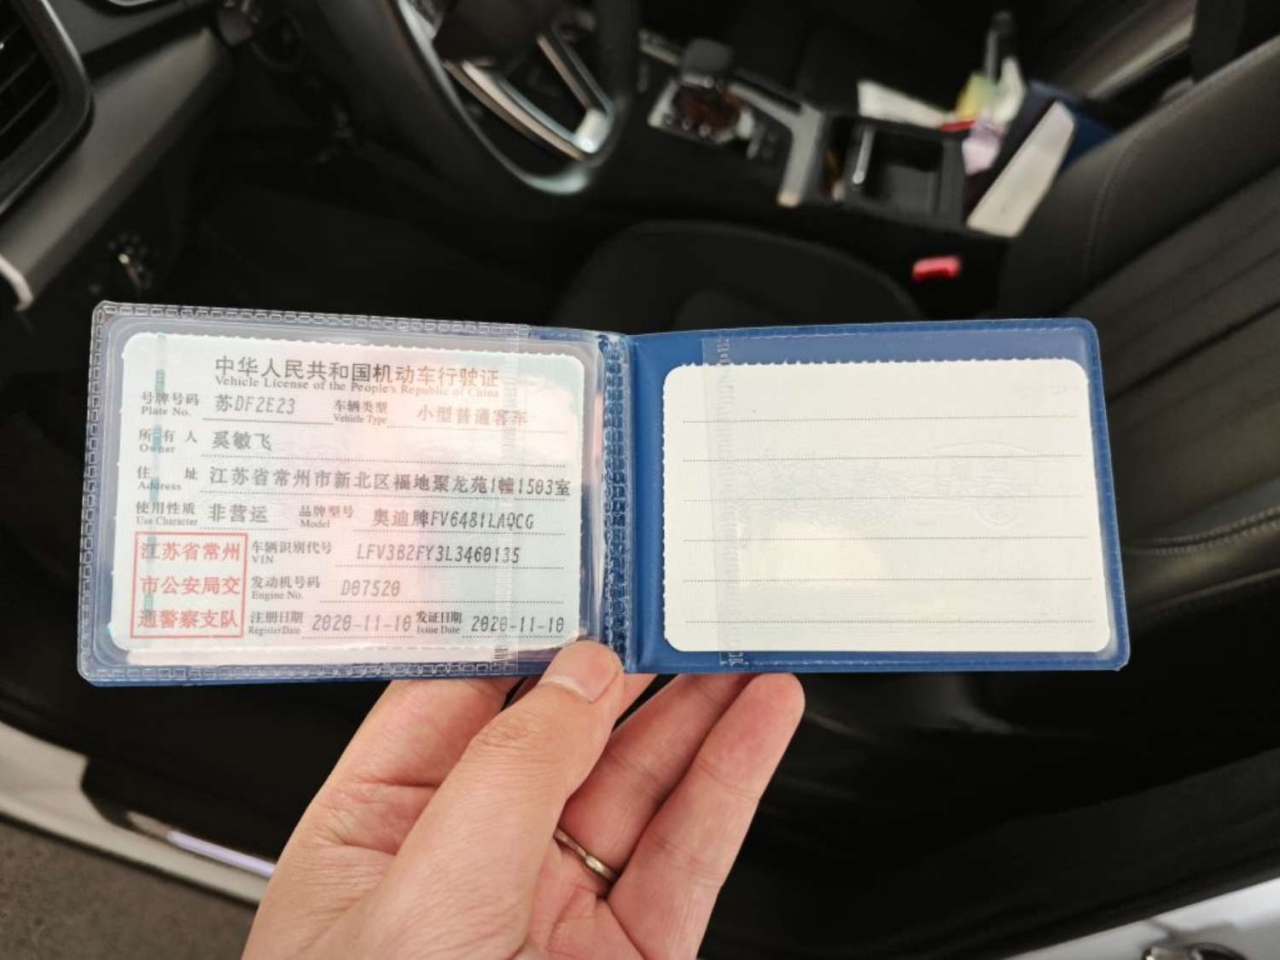 中华人民共和国机动车行驶证
Vehicle License of the People's Republic of China
号牌号码 苏DF2E23 车辆类型 小型普通客车
Plate No. Vehicle Type
所有人 奚敏飞
Owner
住址 江苏省常州市新北区福地聚龙苑1幢1503室
Address
使用性质 非营运 品牌型号 奥迪牌FV6481LAQCG
Use Character Model
江苏省常州
市公安局交
通警察支队
车辆识别代号 LFV3B2FY3L3460135
VIN
发动机号码 D07520
Engine No.
注册日期 2020-11-10 发证日期 2020-11-10
Register Date Issue Date